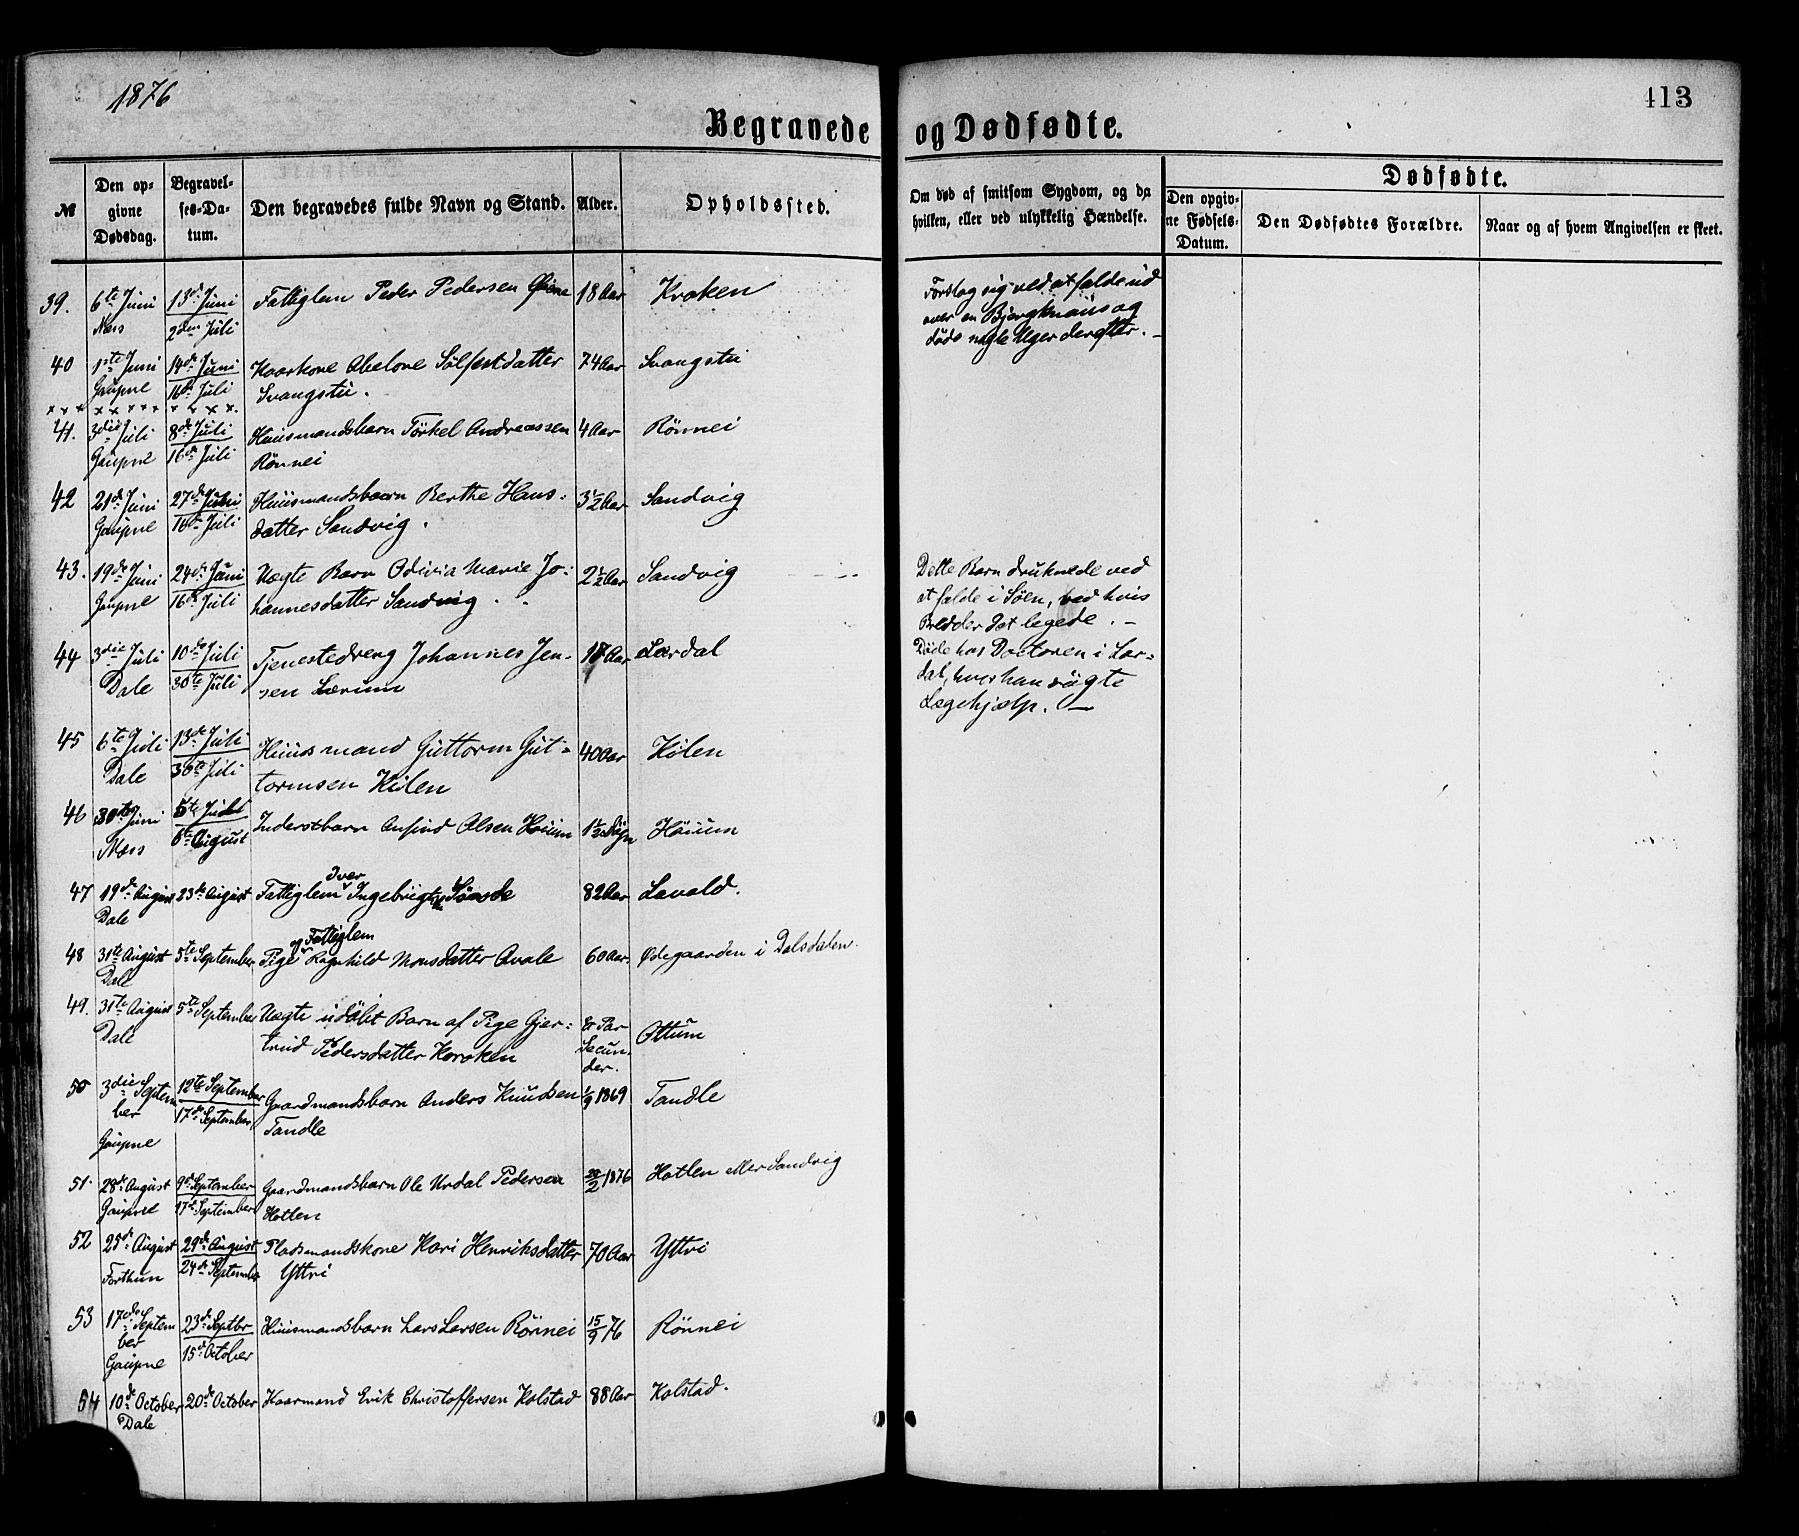 1876
413
Begravede og Dødfødte.
№
Den opgivne Dødsdag.
Begravelses-Datum.
Den begravedes fulde Navn og Stand.
Alder.
Opholdssted.
Om død af smitsom Sygdom, og da hvilken, eller ved ulykkelig Hændelse.
Dødfødte.
Den opgivne Fødsels-Datum.
Den Dødfødtes Forældre.
Naar og af hvem Angivelsen er skeet.
39. 6te Juni 13de Juni Fattiglem Peder Pedersen 18 Aar Kroken Forslog sig ved at falde ud
Næs 2den Juli over en Bjergknaus og
døde nogle Uger derefter. –
40 1ste Juni 14de Juni Kaarkone Abelone Sølfestdatter 74 Aar Svangstu
Gaupne 16de Juli Svangstu.
41. 3die Juli 8de Juli Huusmandsbarn Törkel Andreassen 4 Aar Rönnei
Gaupne 16de Juli Rönnei
42 21de Juni 27de Juni Huusmandsbarn Berthe Hans- 3½ Aar Sandvig
Gaupne 16de Juli datter Sandvig.
43. 19de Juni 24de Juni Uægte Barn Odivia Marie Jo- 2½ Aar Sandvig Dette Barn druknede ved
Gaupne 16de Juli hannesdatter Sandvig. at falde i Søen, ved hvis
Bredder det legede. –
44 3die Juli 10de Juli Tjenestedreng Johannes Jen- 17 Aar Lærdal Døde hos Doctoren i Lær-
Dale 30te Juli sen Lærum dal, hvor han søgte
Lægehjælp. –
45 6te Juli 13de Juli Huusmand Guttorm Gut- 40 Aar Kilen
Dale 30te Juli tormsen Kilen
46 30te Juni 5te Juli Inderstbarn Anfind Olsen Høium 1½ Døgn Høium
Næs 6te August
Iver
47 19de August 23de August Fattiglem Ingebrigtsen 82 Aar Lavold.
Dale
og Fattiglem
48 31te August 5te September Pige Ragnhild Monsdatter Qvale 60 Aar. Ødegaarden i Dalsdalen.
Dale
49. 31te August 5te September Uægte udøbt Barn af Pige Gjer- Et Par Ottum
Dale trud Pedersdatter Kroken Secun-
der.
50 3die Septem 12te September Gaardmandsbarn Anders Knudsen 1/9 1869 Tandle
ber 17de September Tandle
Gaupne
51. 28de August 9de September Gaardmandsbarn Ole Urdal Pedersen 1876 Hotlen eller Sandvig
Gaupne 17de September Hotlen
52 25de August 29de August Pladsmandskone Kari Henriksdatter 70 Aar Yttri
Forthun 24de September Yttri
53 17de Septem 23de Septbr Huusmandsbarn Lars Larsen Rönnei 15/9 76 Rönnei
ber 15de October
Gaupne
54 10de October 20de October Kaarmand Erik Christoffersen Kolstad 88 Aar Kolstad.
Dale